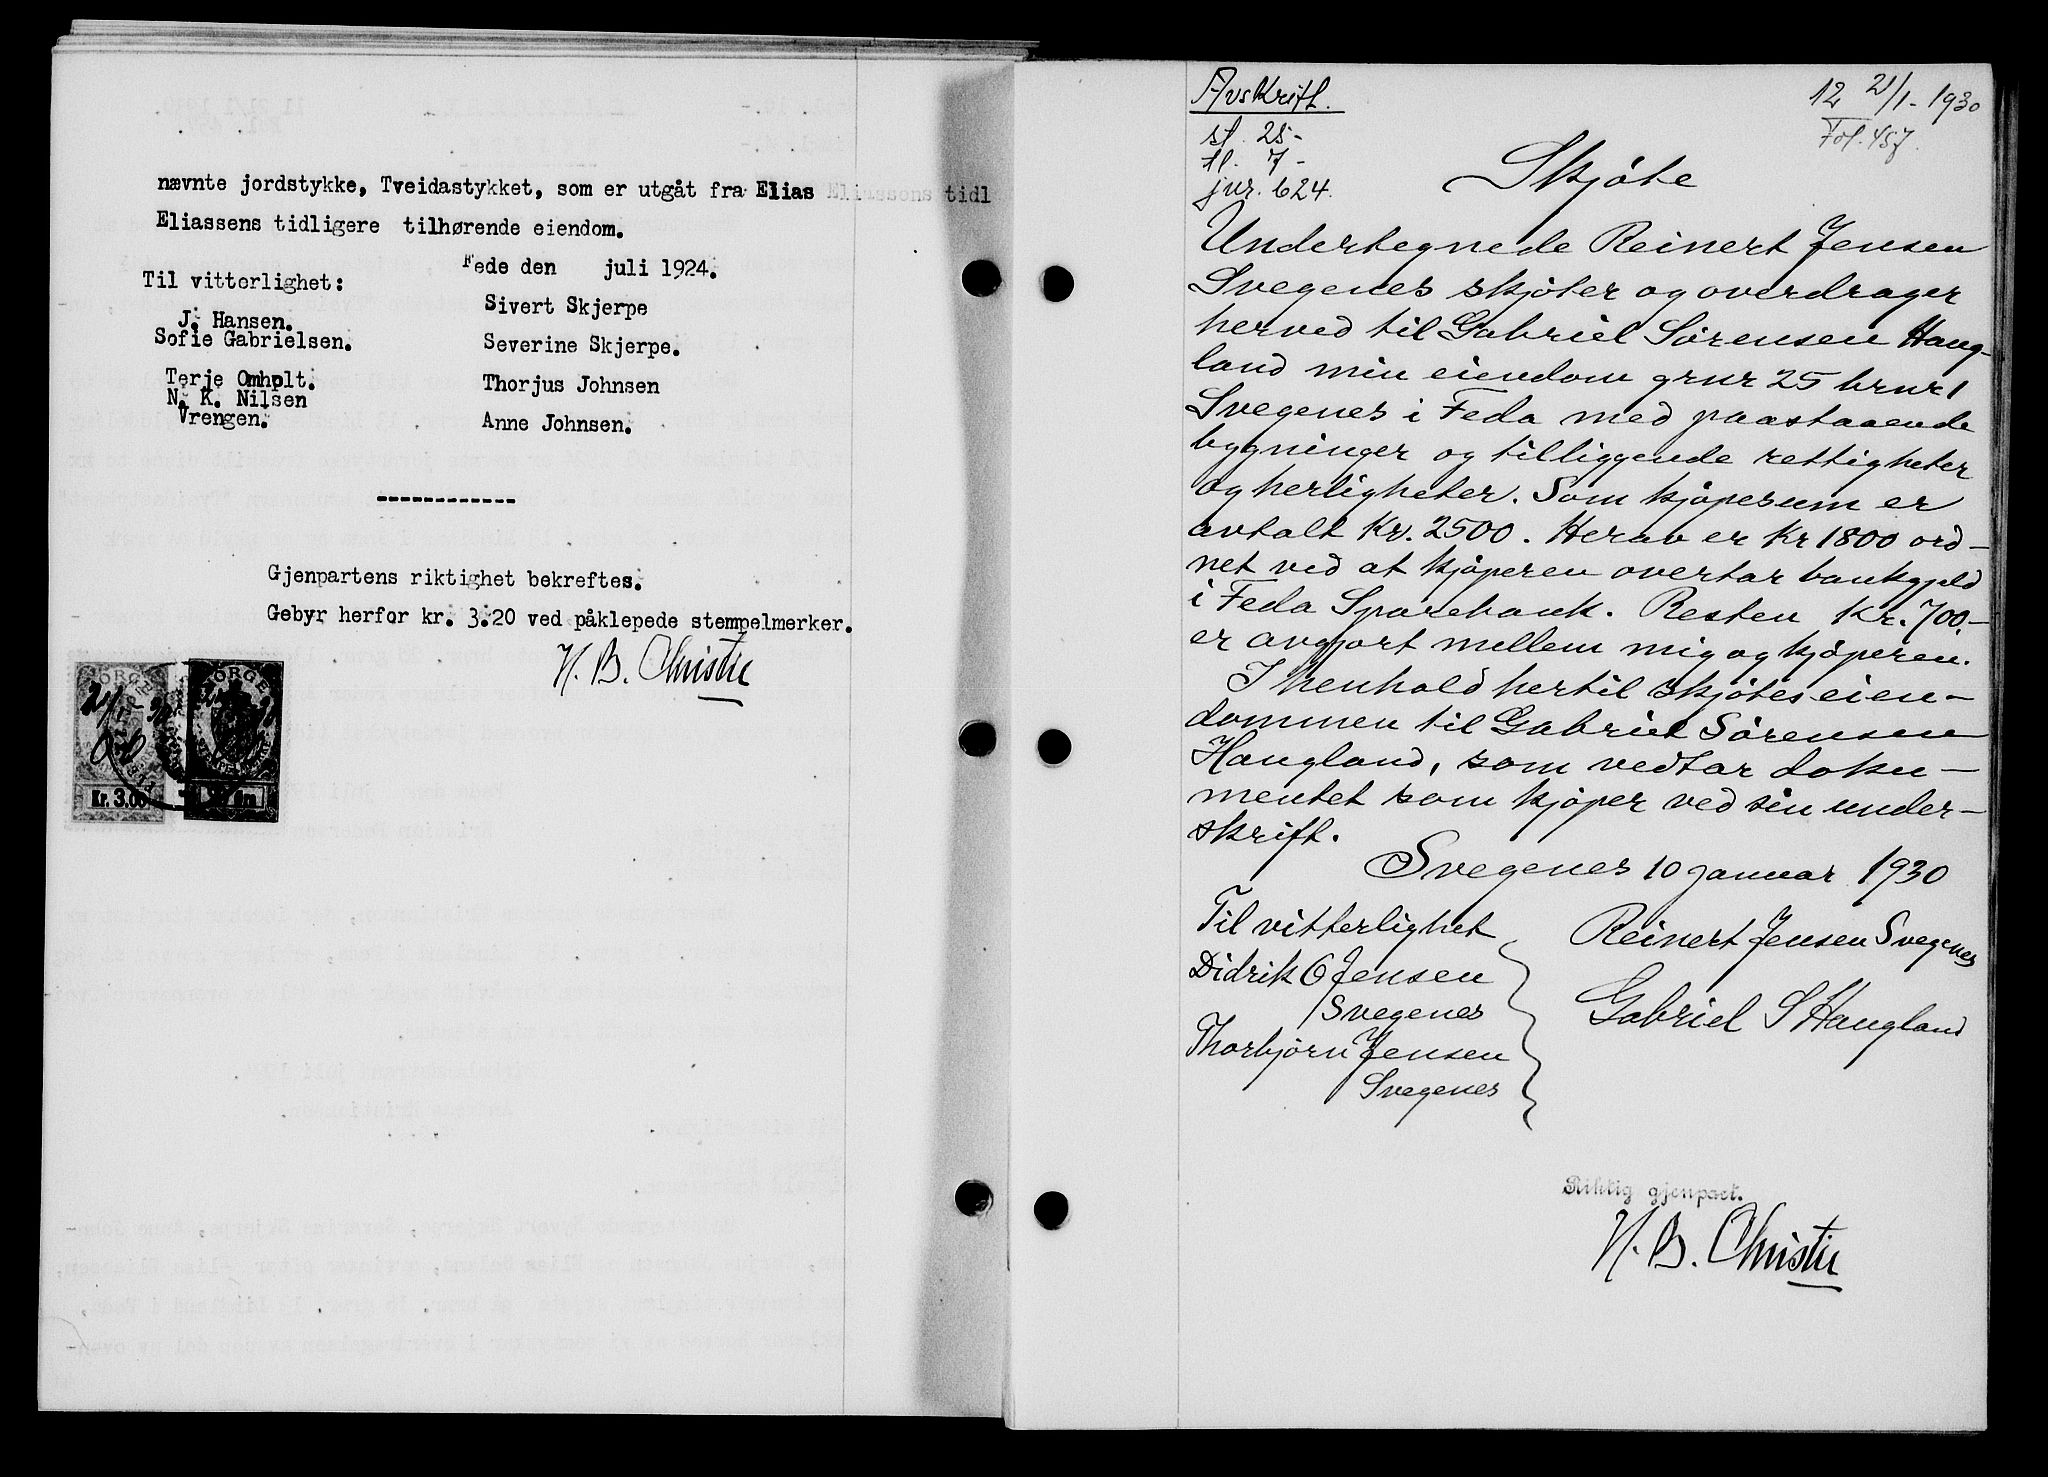 nævnte jordstykke, Tveidastykket, som er utgåt fra Elias Eliassens tidl
Eliassens tidligere tilhørende eiendom.
Fede den juli 1924.
Til vitterlighet:
J. Hansen.
Sofie Gabrielsen.
Terje Omholt.
N. K. Nilsen
Vrengen.
Sivert Skjerpe
Severine Skjerpe.
Thorjus Johnsen
Anne Johnsen.
------------
Gjenpartens riktighet bekreftes.
Gebyr herfor kr. 3:20 ved påklepede stempelmerker.
H. B. Christie
NORGE
NORGE
Kr. 3.00
20 Øre
Avskrift.
st. 25-
tl. 7-
jnr. 624.
12 21/1-1930
Fol. 457.
Skjøte
Undertegnede Reinert Jensen
Svegenes skjøter og overdrager
herved til Gabriel Sørensen Haug-
land min eiendom grnr 25 brnr 1
Svegenes i Feda med paastaaende
bygninger og tilliggende rettigheter
og herligheter. Som kjøpesum er
avtalt Kr. 2500. Herav er Kr 1800 ord-
net ved at kjøperen overtar bankgjeld
i Feda Sparebank. Resten Kr. 700.-
er avgjort mellem mig og kjøperen.
I henhold hertil skjøtes eien-
dommen til Gabriel Sørensen
Haugland, som vedtar doku-
mentet som kjøper ved sin under-
skrift.
Svegenes 10 januar 1930
Til vitterlighet
Didrik O Jensen
Svegenes
Thorbjørn Jensen
Svegenes
Reinert Jensen Svegenes
Gabriel S Haugland
Riktig gjenpart.
H. B. Christie